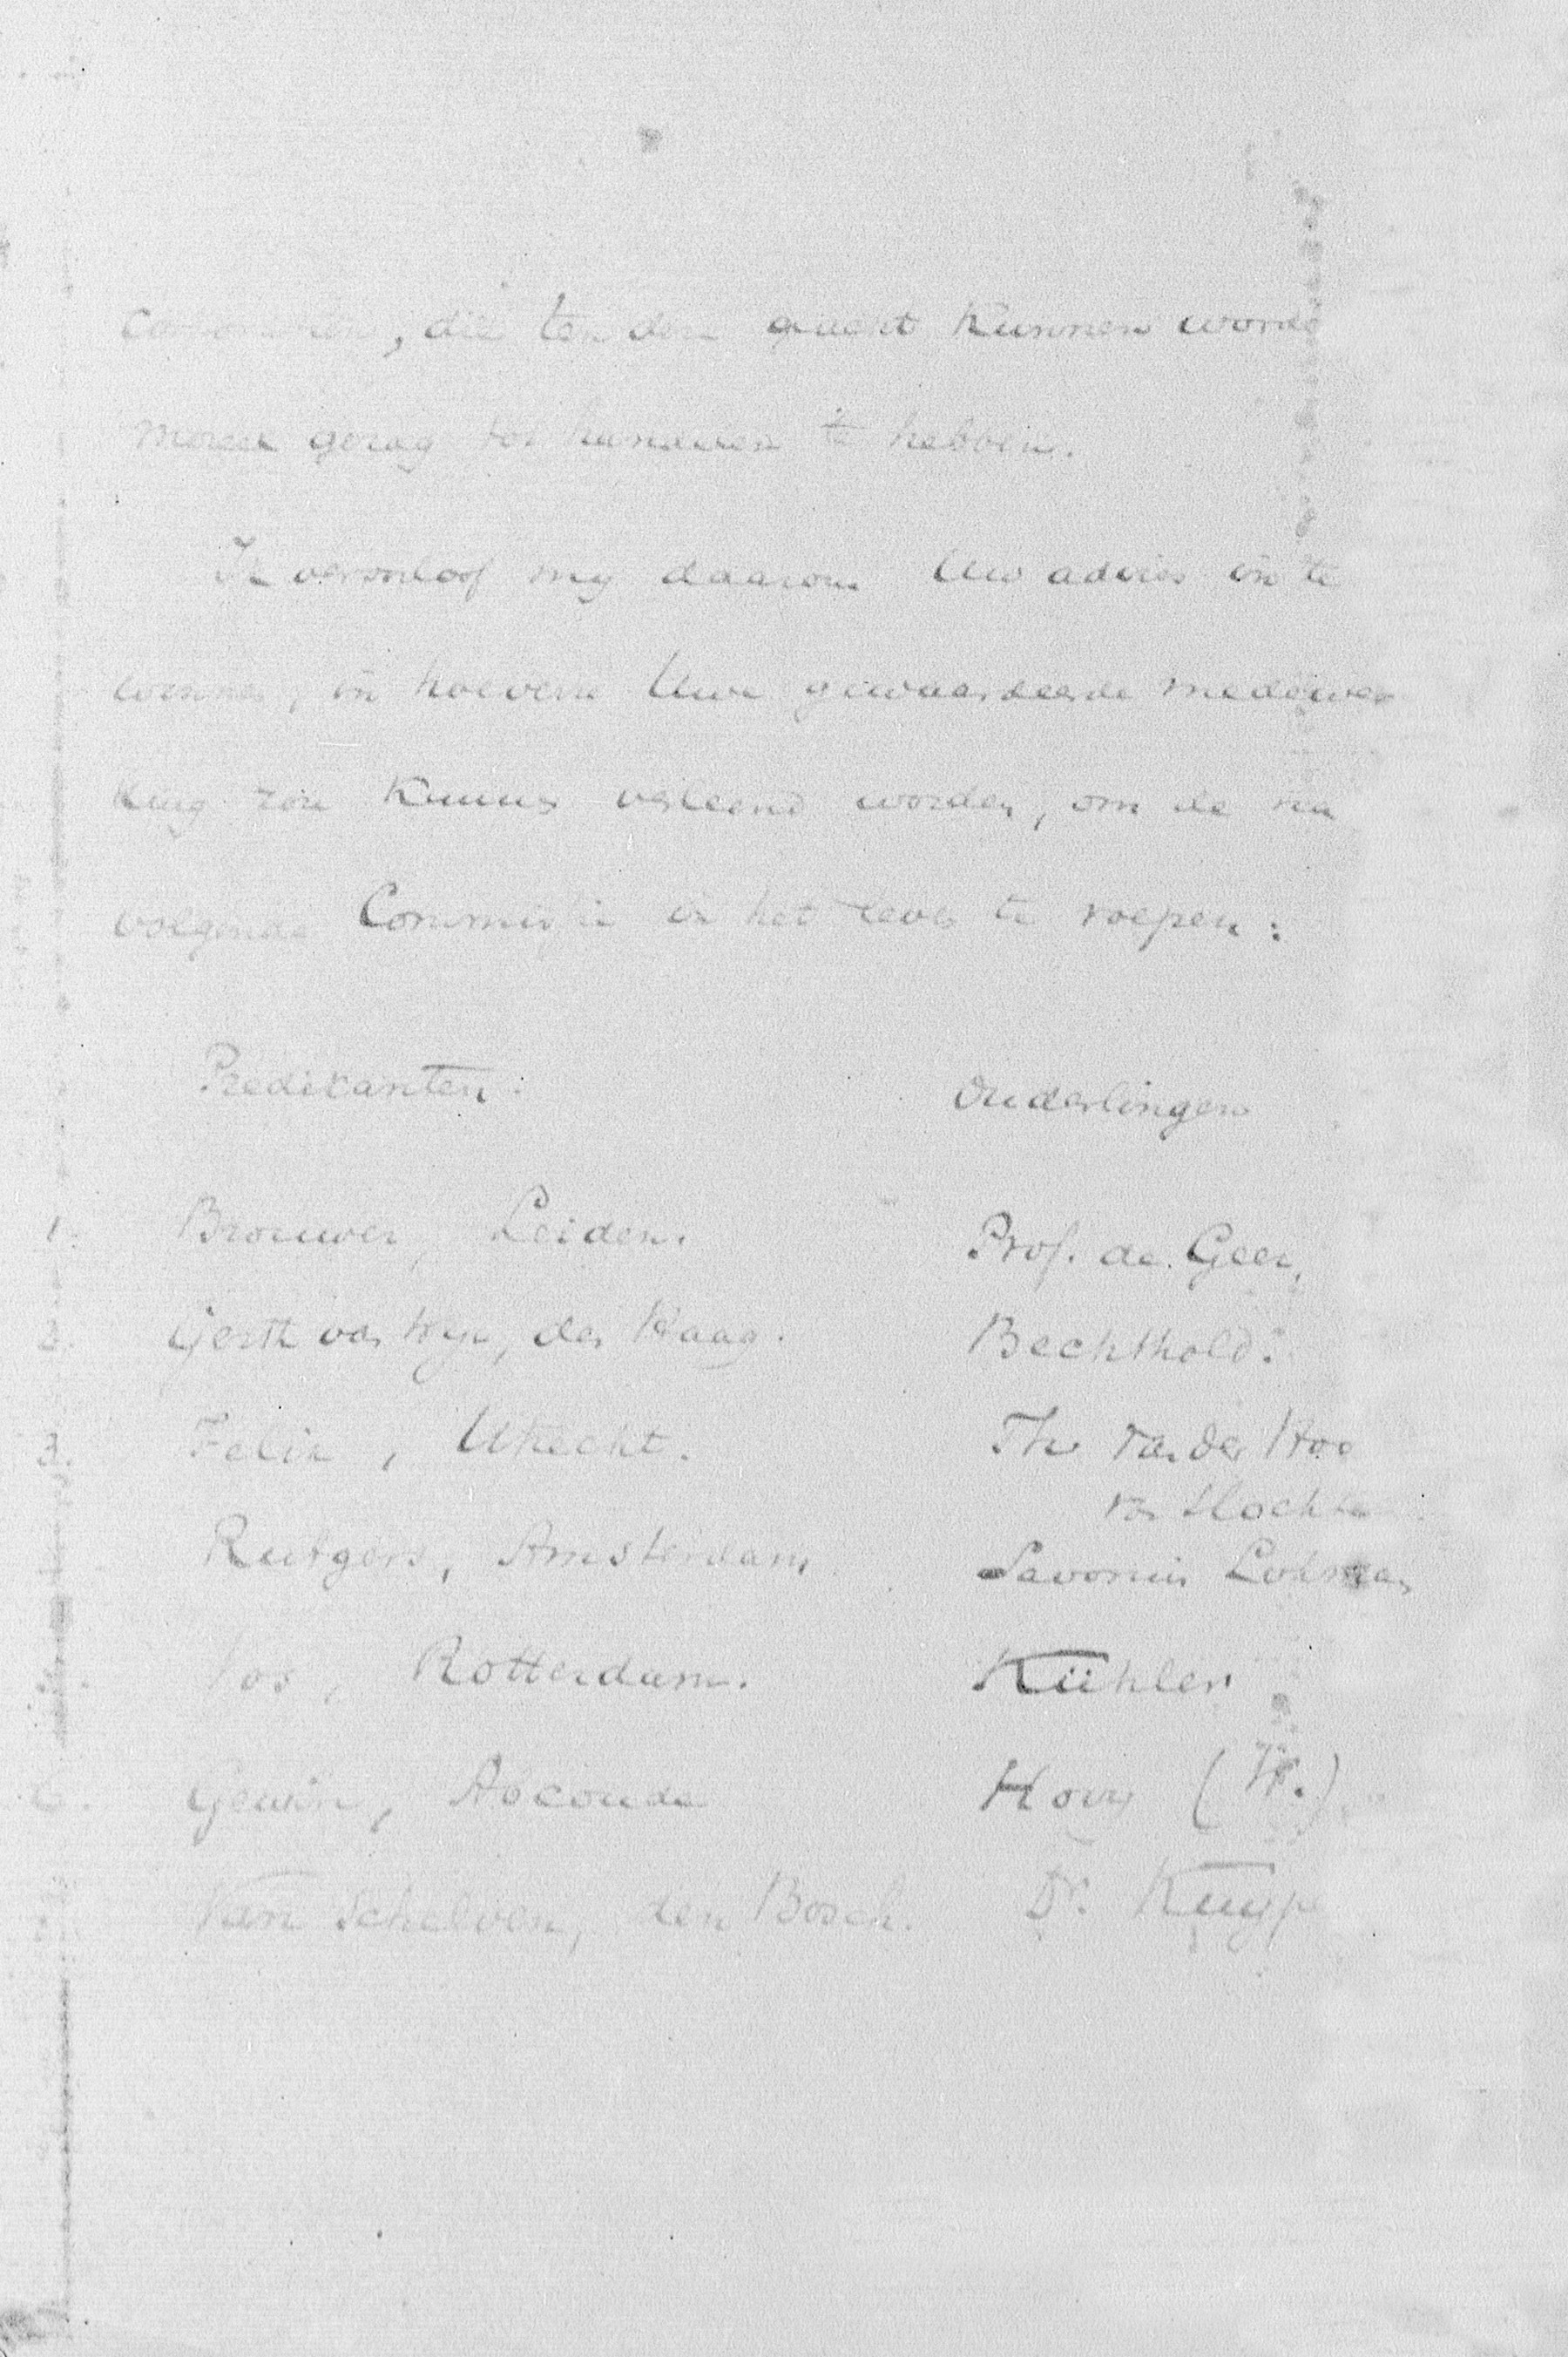 , die ten deze geacht kunnen worde
moreel gezag tot handelen te hebben.
Ik veroorloof my daarom Uw advies in te
winnen, in hoeverre Uwe gewaardeerde medewer
king zou kunnen verleend worden, om de na
volgende Commissie in het leven te roepen:
Predikanten: Ouderlingen
1. Brouwer, Leiden. Prof. de Geer,
2. Gerth van Wyn, den Haag. Bechthold.
3. Felix, Utrecht. Th van der Hoo
van Slochte
Rutgers, Amsterdam, Savornin Lohman
Vos, Rotterdam. Kühler
6. Gewin, Abcoude Hovy (W.)
Van Schelven, den Bosch. Dr. Kuype